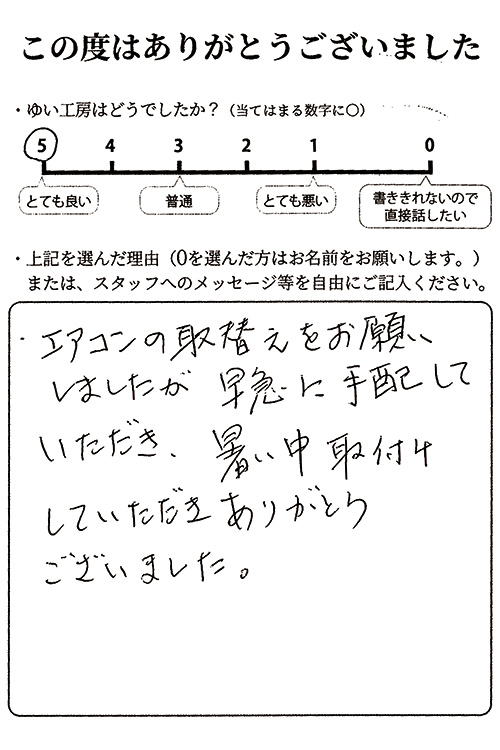 この度はありがとうございました
・ゆい工房はどうでしたか？（当てはまる数字に〇）
5 4 3 2 1 0
とても良い 普通 とても悪い 書ききれないので
直接話したい
・上記を選んだ理由（0を選んだ方はお名前をお願いします。）
または、スタッフへのメッセージ等を自由にご記入ください。
・エアコンの取替えをお願い
しましたが 早急に手配して
いただき、暑い中取付け
していただきありがとう
ございました。